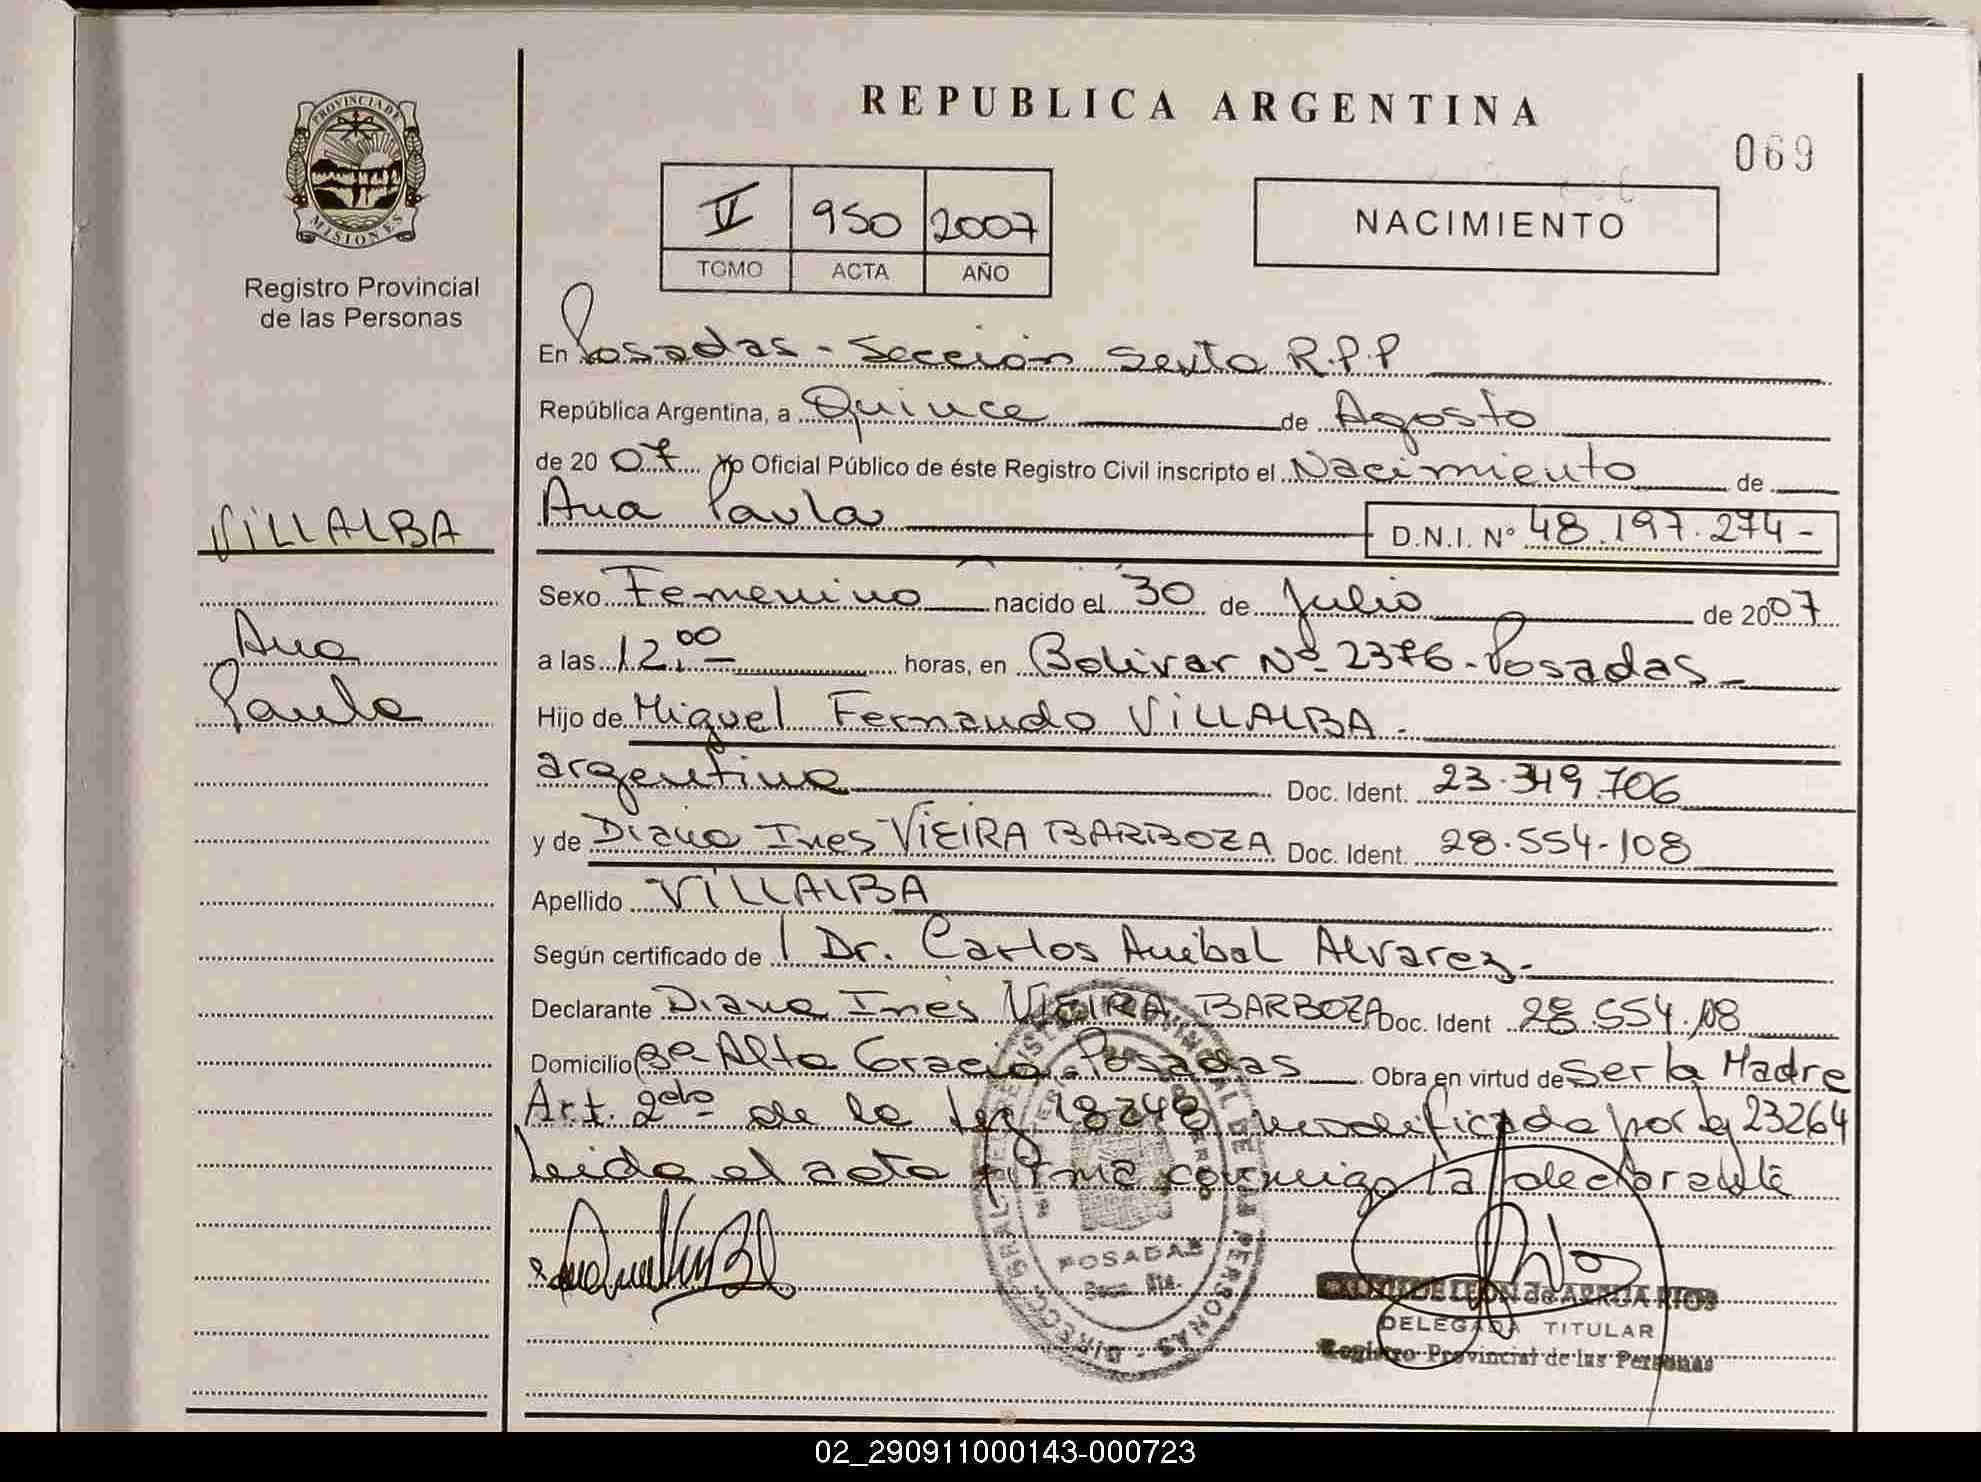 PROVINCIA DE
MISIONES
Registro Provincial
de las Personas
VILLALBA
Ana
Paula
REPUBLICA ARGENTINA
069
950 2007
TOMO ACTA AÑO
NACIMIENTO
En Posadas - Sección Sexta R.P.P
República Argentina, a Quince de Agosto
de 2007 Yo Oficial Público de éste Registro Civil inscripto el Nacimiento de
Ana Paula D.N.I. Nº 48.197.274-
Sexo Femenino nacido el 30 de Julio de 2007
a las 12,00 horas, en Bolivar Nº 2376 - Posadas -
Hijo de Miguel Fernando VILLALBA -
argentina Doc. Ident. 23.349.706
y de Diana Ines VIEIRA BARBOZA Doc. Ident. 28.554.108
Apellido VILLALBA
Según certificado de Dr. Carlos Anibal Alvarez -
Declarante Diana Inés VIEIRA BARBOZA Doc. Ident 28.554.108
Domicilio Bº Alta Gracia - Posadas Obra en virtud de Ser la Madre
Art. 2do de la Ley 18248 modificada por la 23264
Leida el acta firma conmigo la declarante
DIRECC. GRAL. DEL REGISTRO PROVINCIAL DE LAS PERSONAS
POSADAS
Secc. 6ta.
DE LEON de ARRUA RIOS
DELEGADA TITULAR
Registro Provincial de las Personas
02_290911000143-000723